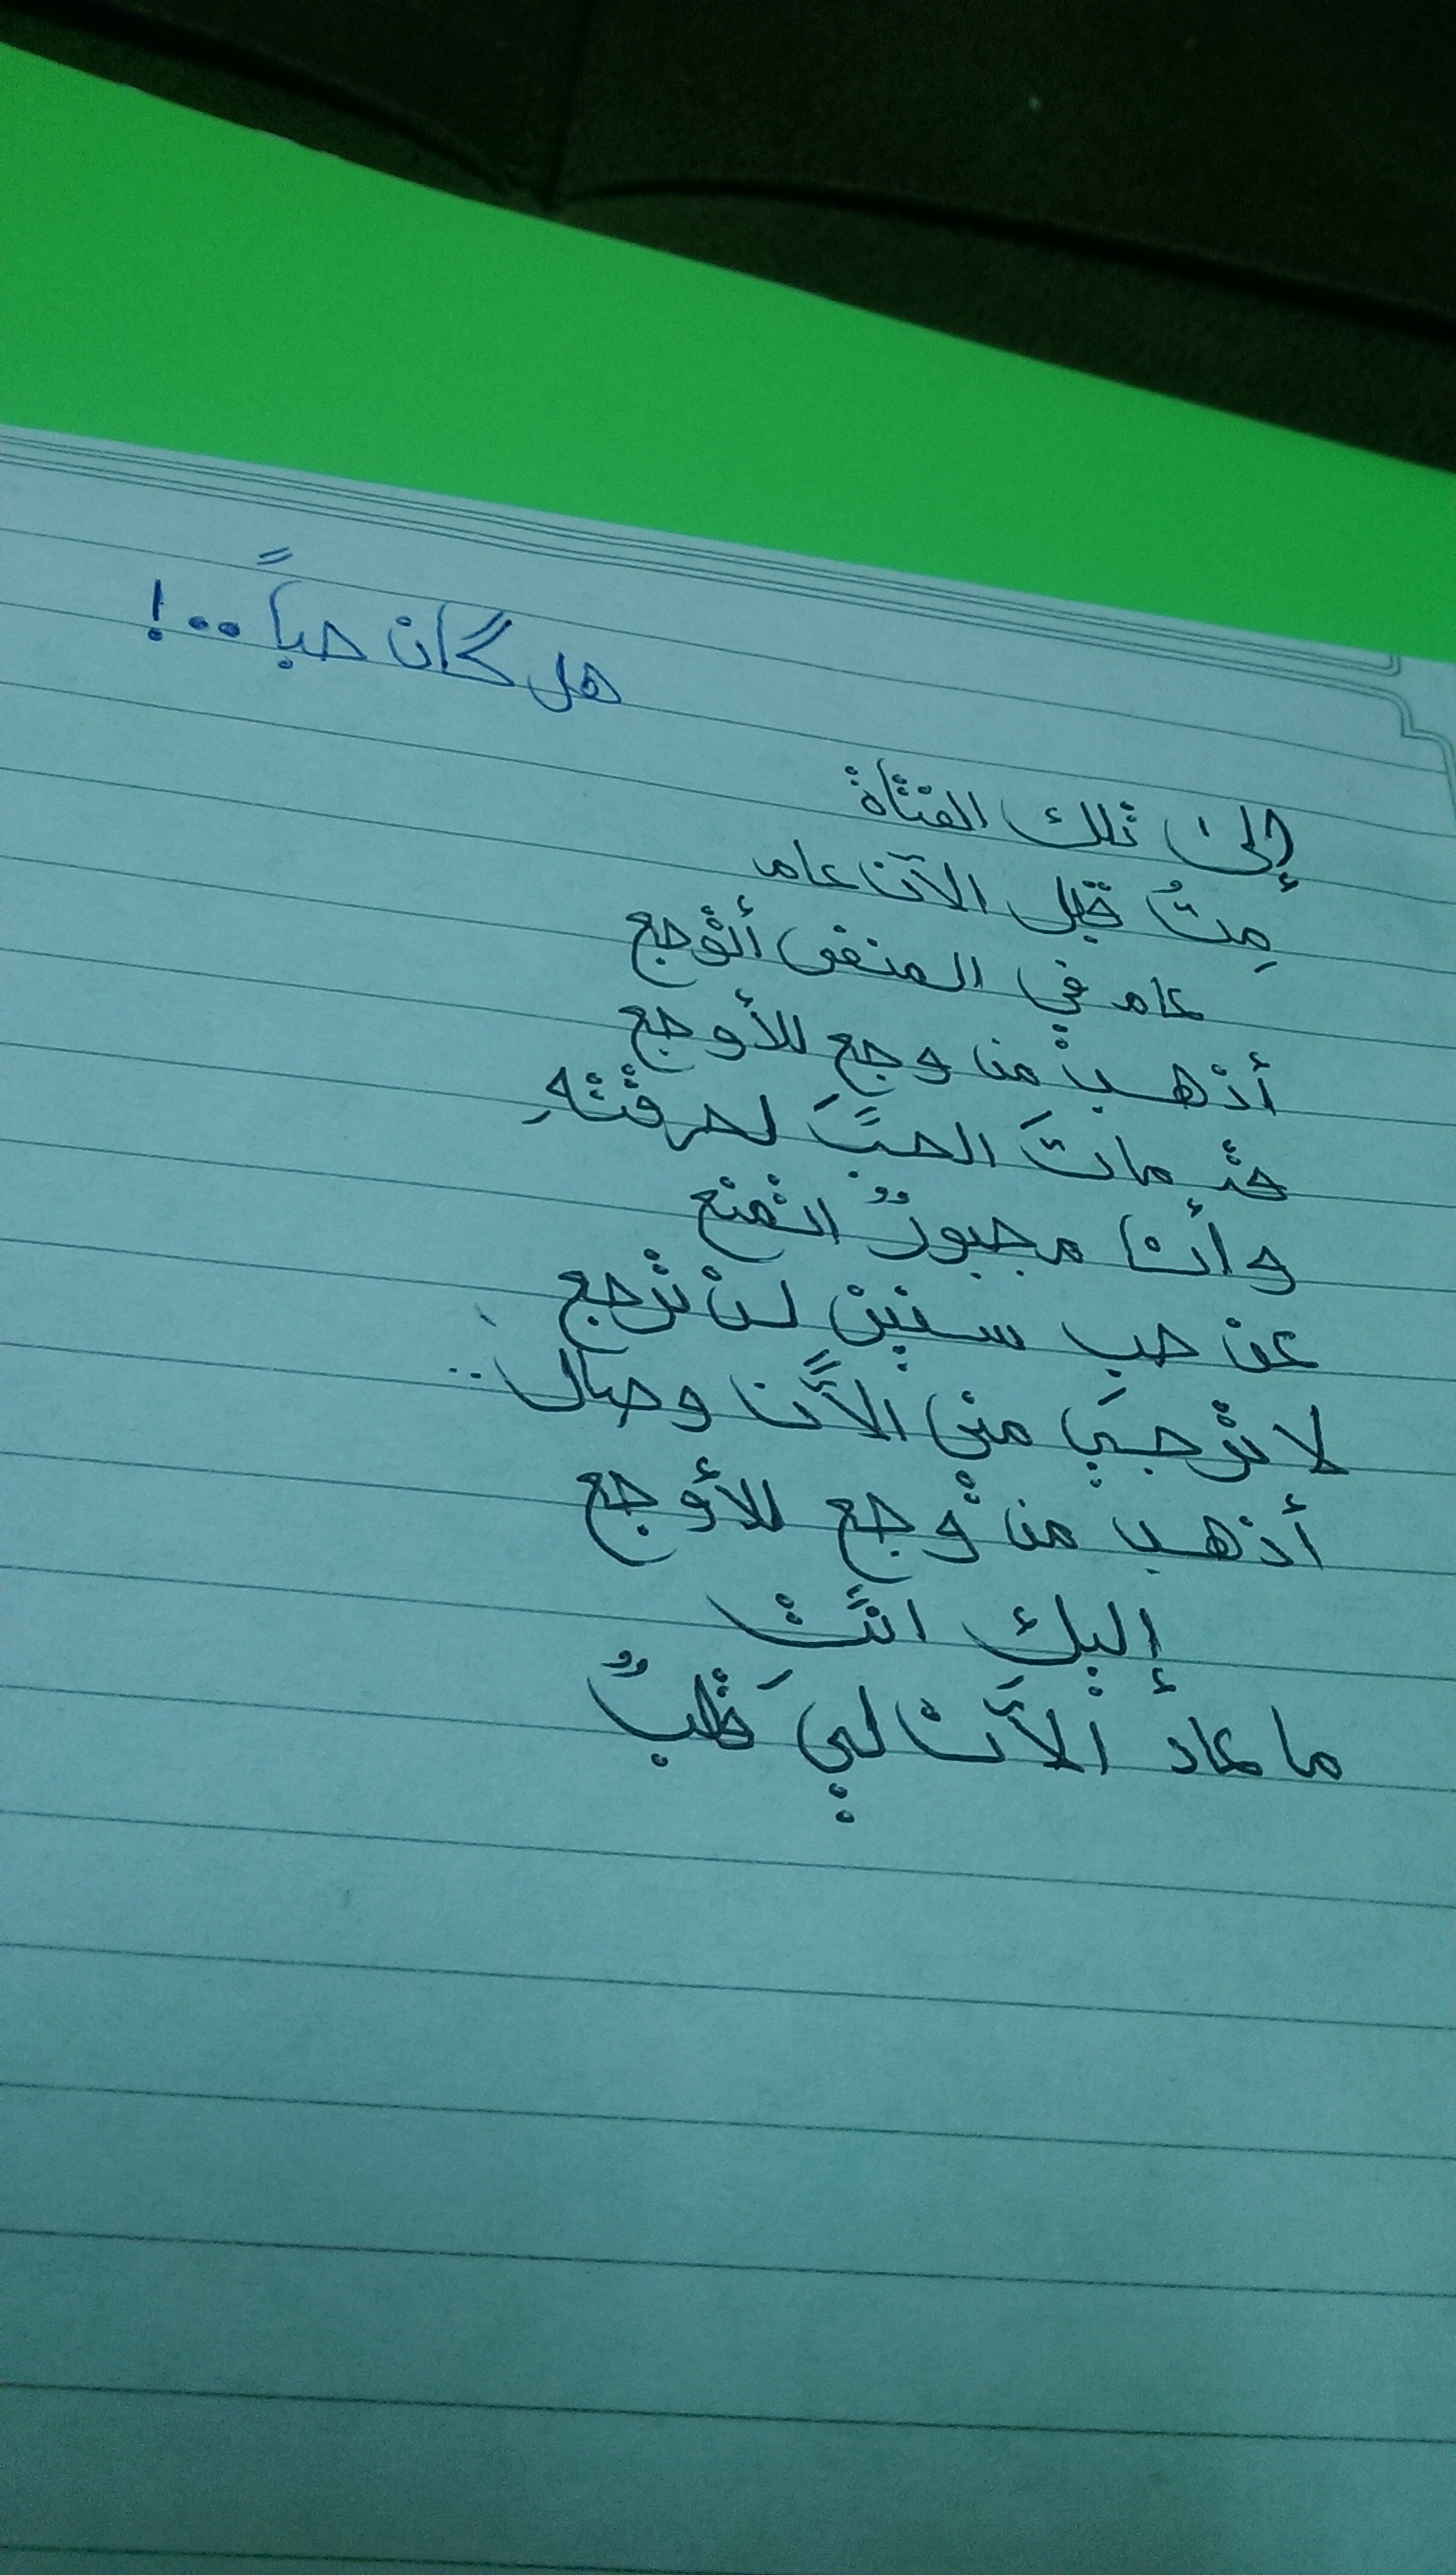 هل كان حباً ..!
إلى تلك الفتاة
مِتُ قبل الآن عام
عام في المنفى أتوجع
أذهب من وجع للأوجع
مات الحبَّ لحرقتهِ
وأنا مجبورٌ اتمنع
عن حب سنين لن ترجع
لا ترجيَ مني الأن وصال ..
أذهب من وجع للأوجع
إليك انتَ
ما عاد الأن ليَ قلبٌ